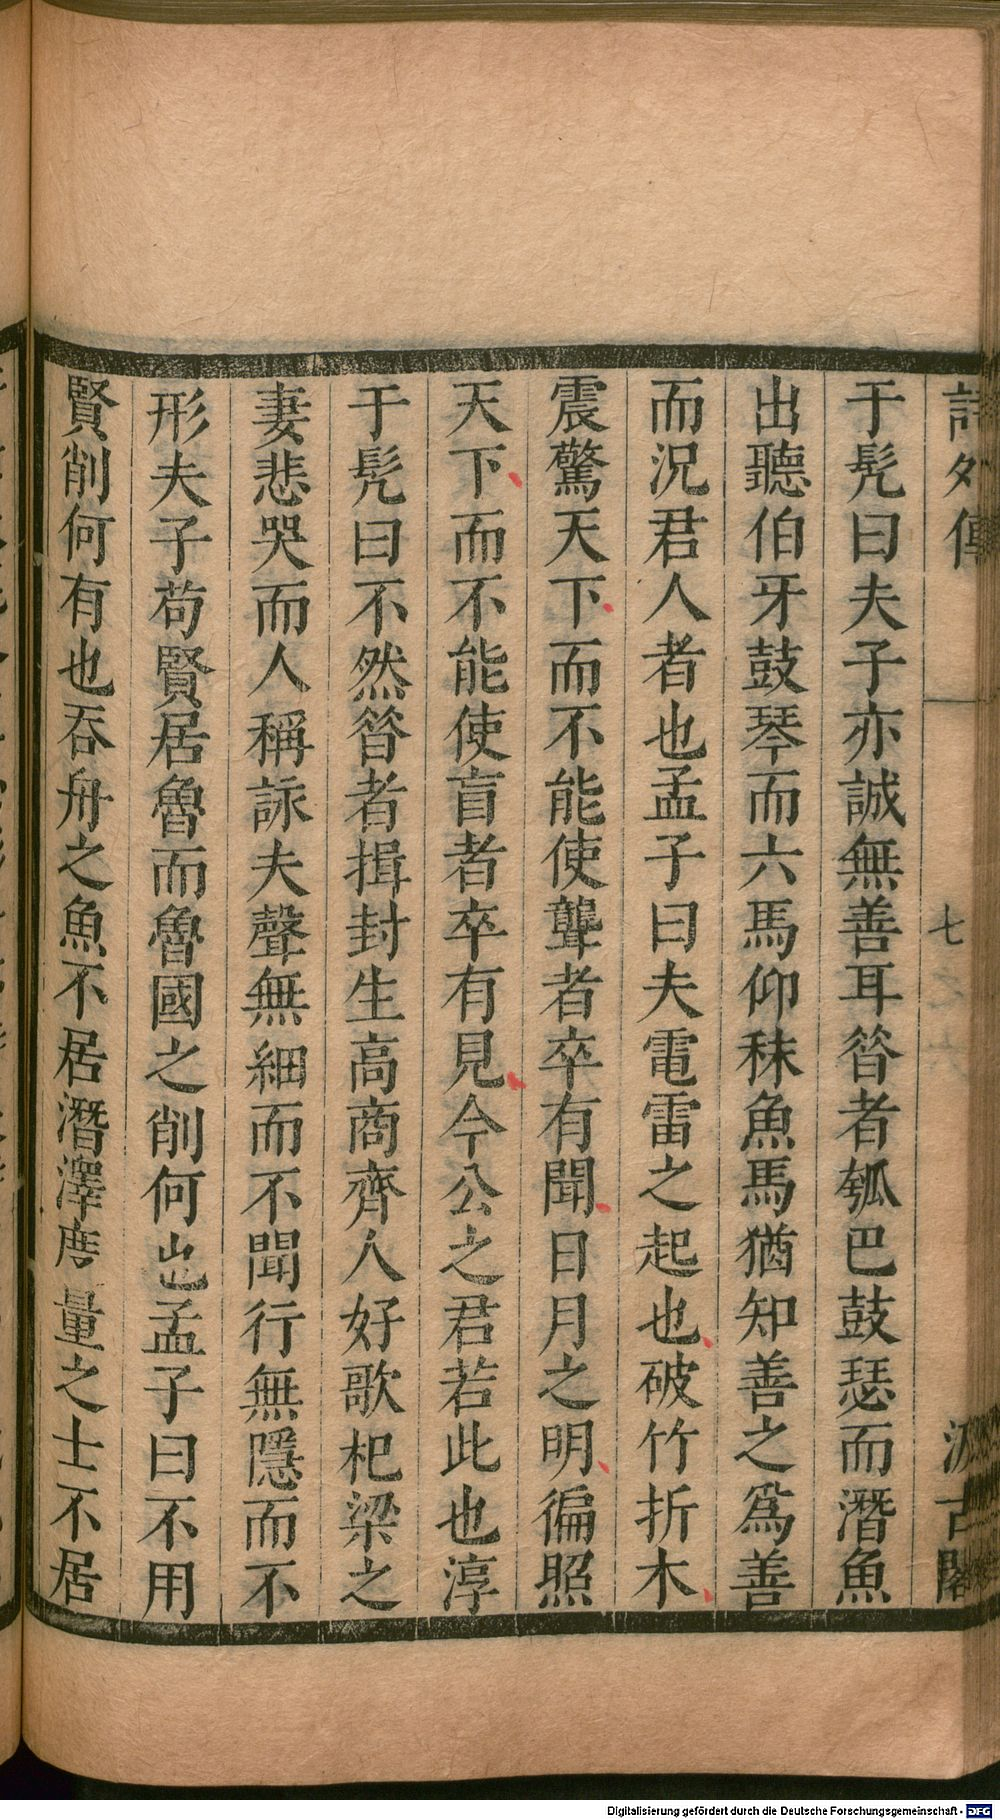 詩外傳 七 汲古閣
于髡曰夫子亦誠無善耳昝者瓠巴鼓瑟而潛魚
出聽伯牙鼓琴而六馬仰秣魚馬猶知善之爲善
而況君人者也孟子曰夫電雷之起也破竹折木
震驚天下而不能使聾者卒有聞日月之明徧照
天下而不能使盲者卒有見今公之君若此也淳
于髡曰不然昝者揖封生高商齊人好歌杞梁之
妻悲哭而人稱詠夫聲無細而不聞行無隱而不
形夫子苟賢居魯而魯國之削何也孟子曰不用
賢削何有也吞舟之魚不居潛澤度量之士不居
Digitalisierung gefördert durch die Deutsche Forschungsgemeinschaft - DFG